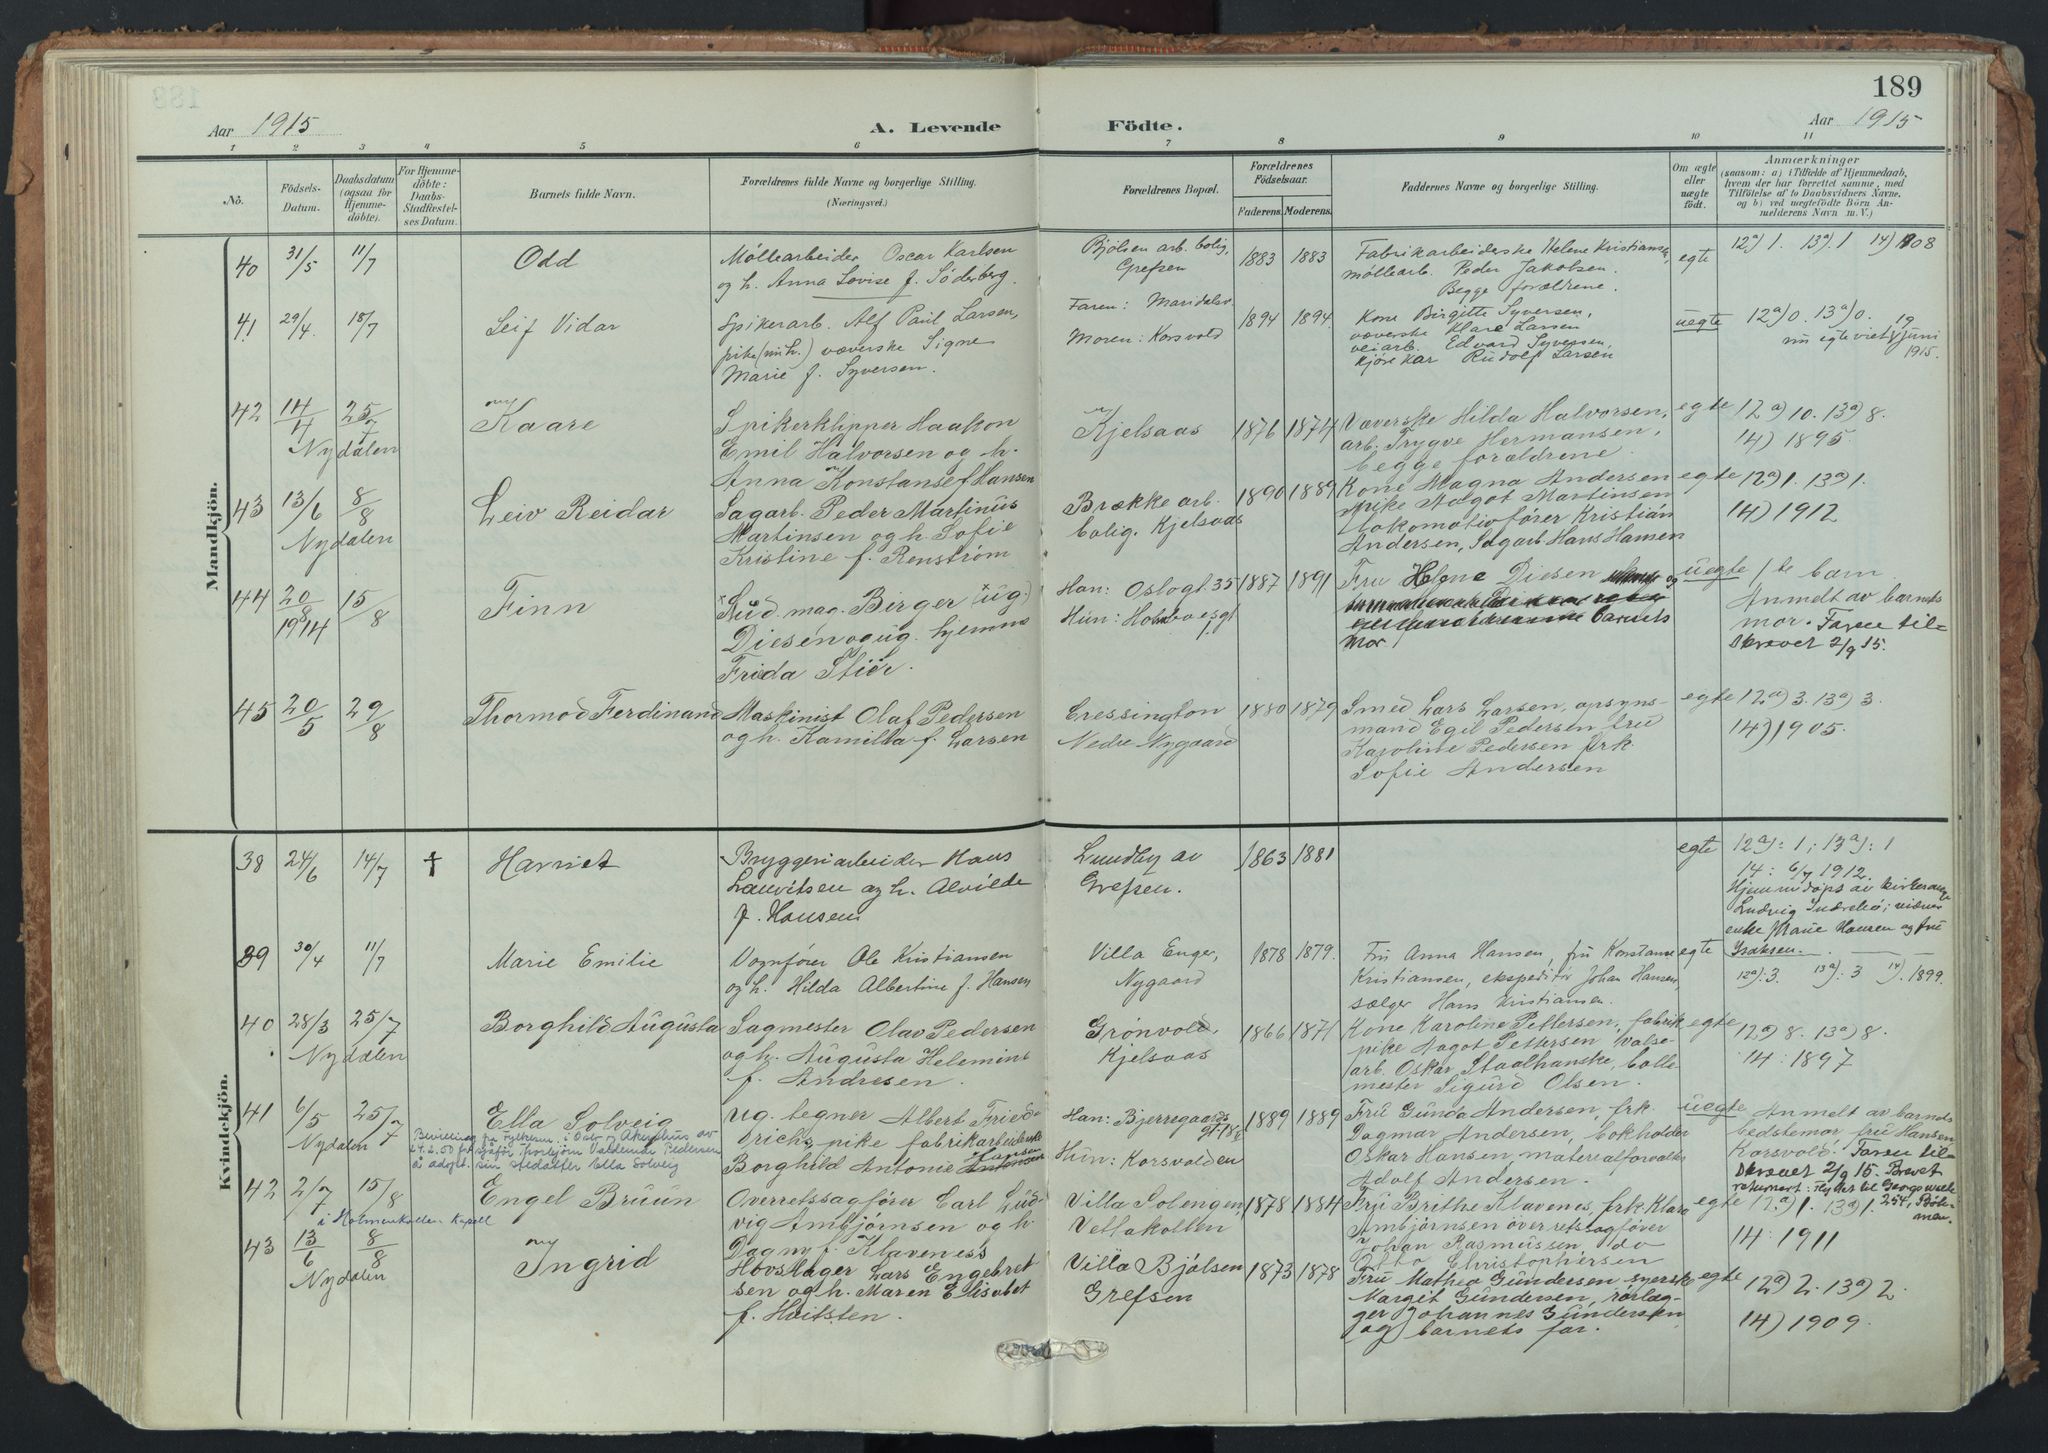 189
Aar 1915
A. Levende Födte.
Aar 1915
1 2 3 4 5 6 7 8 9 10 11
No.
Födsels-
Datum.
Daabsdatum
(ogsaa for
Hjemme-
döbte).
For Hjemme-
döbte:
Daabs-
Stadfæstel-
ses Datum.
Barnets fulde Navn.
Forældrenes fulde Navne og borgerlige Stilling.
(Næringsvei.)
Forældrenes Bopæl.
Forældrenes
Fødselsaar.
Faderens. Moderens.
Faddernes Navne og borgerlige Stilling.
Om ægte
eller
uægte
födt.
Anmærkninger
(saasom: a) i Tilfælde af Hjemmedaab,
hvem der har forrettet samme, med
Tilføielse af to Daabsvidners Navne,
og b) ved uægtefödte Börn An-
melderens Navn m. V.)
Mandkjön.
40
31/5
11/7
Odd
Möllearbeider Oscar Karlsen
og h. Anna Lovise f. Söderberg.
Bjölsen arb. bolig,
Grefsen
1883 1883
Fabrikarbeiderske Helene Kristiansen,
möllearb. Peder Jakobsen.
Begge forældrene.
egte
12a) 1. 13a) 1 14) 1908
41
29/4.
18/7
Leif Vidar
Spikerarb. Alf Paul Larsen,
pike væverske Signe
Marie f. Syversen.
Faren: Maridalsv.
Moren: Korsvold
1894 1894.
Kone Birgitte Syversen,
væverske Klara Larsen
veiarb. Edvard Syversen,
kjörekar Rudolf Larsen
uegte
12a) 0. 13a) 0.
nu egteviet 19 juni
1915.
42
14/4
25/7
Nydalen
Kaare
Spikerklipper Haakon
Emil Halvorsen og h.
Anna Konstanse f. Hansen
Kjelsaas
1876 1874
Væverske Hilda Halvorsen,
arb. Trygve Hermansen,
begge forældrene
egte
12a) 10. 13a) 8.
14) 1895.
43
13/6
8/8
Nydalen
Leiv Reidar
Sagarb. Peder Martinus
Martinsen og h. Sofie
Kristine f. Renström
Brække arb.
bolig. Kjelsaas
1890 1889
Kone Magna Andersen
pike Aagot Martinsen
Lokomotivförer Kristian
Andersen, Sagarb. Hans Hansen
egte
12a) 1. 13a) 1.
14) 1912
44
20/8
1914
15/8
Finn
Stud. mag. Birger (ug.)
Diesen og ug. hjemme
Frida Stiër.
Han: Oslogt 35
Hun: Holmboesgt
1887 1891
Fru Helene Diesen og
barnets
mor.
uegte
1ste barn
Anmelt av barnets
mor. Faren til-
skrevet 2/9 15.
45
20/5
29/8
Thormod Ferdinand
Maskinist Olaf Pedersen
og h. Kamilla f. Larsen
Cressington
Nedre Nygaard
1880 1879
Smed Lars Larsen, opsyns-
mand Egil Pedersen fru
Karoline Pedersen frk.
Sofie Andersen
egte
12a) 3. 13a) 3.
14) 1905.
Kvindekjön.
38
24/6
14/7
†
Harriet
Bryggeriarbeider Hans
Lauritsen og h. Alvilde
f. Hansen
Lundby av
Grefsen.
1863 1881
egte
12a): 1; 13a): 1
14: 6/7 1912.
Hjemmedöpt av kirkesanger
Ludvig Inderhö; vidner
enke Marie Hansen og fru
Isaksen.
39
30/4
11/7
Marie Emilie
Vognförer Ole Kristiansen
og h. Hilda Albertine f. Hansen
Villa Enger,
Nygaard
1878 1879.
Fru Anna Hansen, fru Konstanse
Kristiansen, ekspeditör Johan Hansen,
sælger Hans Kristiansen.
egte
12a): 3 13a): 3 14). 1899.
40
28/3
25/7
Nydalen
Borghild Augusta
Sagmester Olav Pedersen
og h. Augusta Helemine
f. Andresen.
Grönvold,
Kjelsaas
1866 1871
Kone Karoline Pettersen, fabrik-
pike Aagot Pettersen, valse-
arb. Oskar Staalhanske, bolle-
mester Sigurd Olsen.
egte
12a) 8. 13a) 8.
14: 1897
41
6/5
25/7
Nydalen
Ella Solveig
Bevilling fra Fylkesm. i Oslo og Akershus av
24.2.50 for sjåfør Torbjørn Valdemar Pedersen
å adopt. sin stedatter Ella Solveig
Ug. tegner Albert Fried-
richs, pike fabrikarbeiderske
Borghild Antonie Hansen
Han: Bjerregaards
gt. 18
Hun: Korsvolden
1889 1889
Fru Gunda Andersen, frk.
Dagmar Andersen, bokholder
Oskar Hansen, materialforvalter
Adolf Andersen.
uegte
Anmelt av barnets
bedstemor fru Hansen
Korsvold. Faren til-
skrevet 2/9 15. Brevet
returnert: Flyttet til
42
2/7
15/8
i Holmenkollen Kapell
Engel Bruun
Overretssagförer Carl Lud-
vig Ambjörnsen og h.
Dagny f. Klaveness
Villa Solengen,
Vettakollen
1878 1884
Fru Brithe Klavenes, frk. Klara
Ambjörnsen overretssagförer
Johan Rasmussen do
Otto Christophersen
egte
12a) 1. 13a) 1.
14: 1911
43
13/6
8/8
Nydalen
Ingrid
Hovslager Lars Engebret
sen og h. Maren Elisabet
f. Hvitsten.
Villa Bjölsen
Grefsen
1873 1878
Fru Mathea Gundersen syerske
Margit Gundersen, rörlæg-
ger Johannes Gundersen
og barnets far.
egte
12a) 2. 13a) 2.
14) 1909.